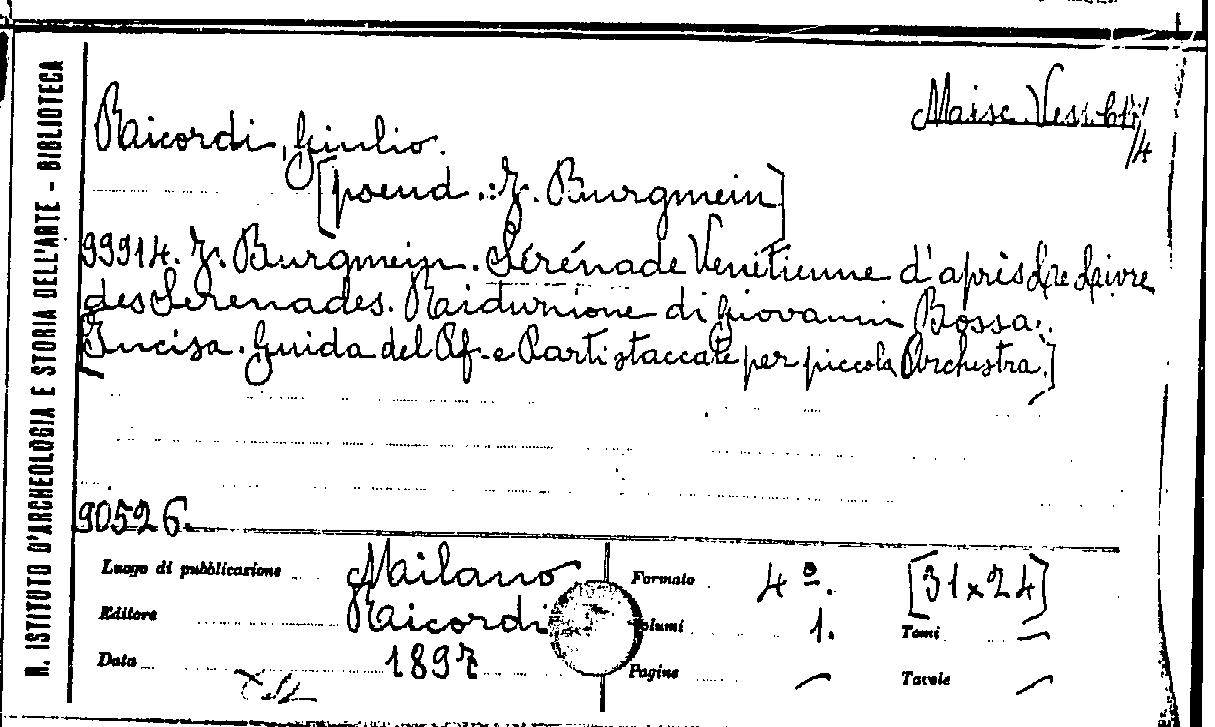 R. ISTITUTO D'ARCHEOLOGIA E STORIA DELL'ARTE - BIBLIOTECA
Ricordi, Giulio.
[pseud.: J. Burgmein]
99914. J. Burgmein. Sérénade Vénitienne d'après Le Livre
des Serenades. Riduzione di Giovanni Bossa.
Incisa. Guida del Pf. e Parti staccate per piccola Orchestra.]
90526.
Luogo di pubblicazione Milano
Editore Ricordi
Data 1897
Formato 4º. [31x24]
Volumi 1. Tomi —
Pagine — Tavole —